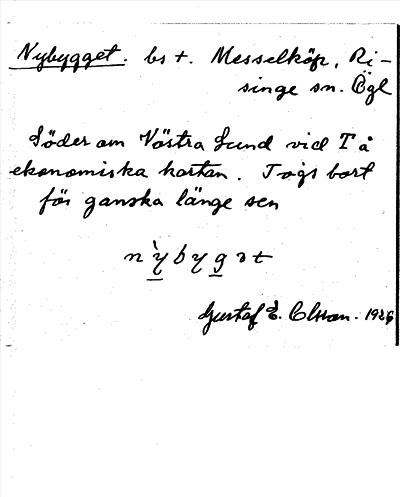 Nybygget. bs t. Messelköp, Ri-
singe sn. Ögl
Söder om Västra Lund vid T å
ekonomiska kartan. Togs bort
för ganska länge sen
nỳbygət
Gustaf E. Olsson. 1926